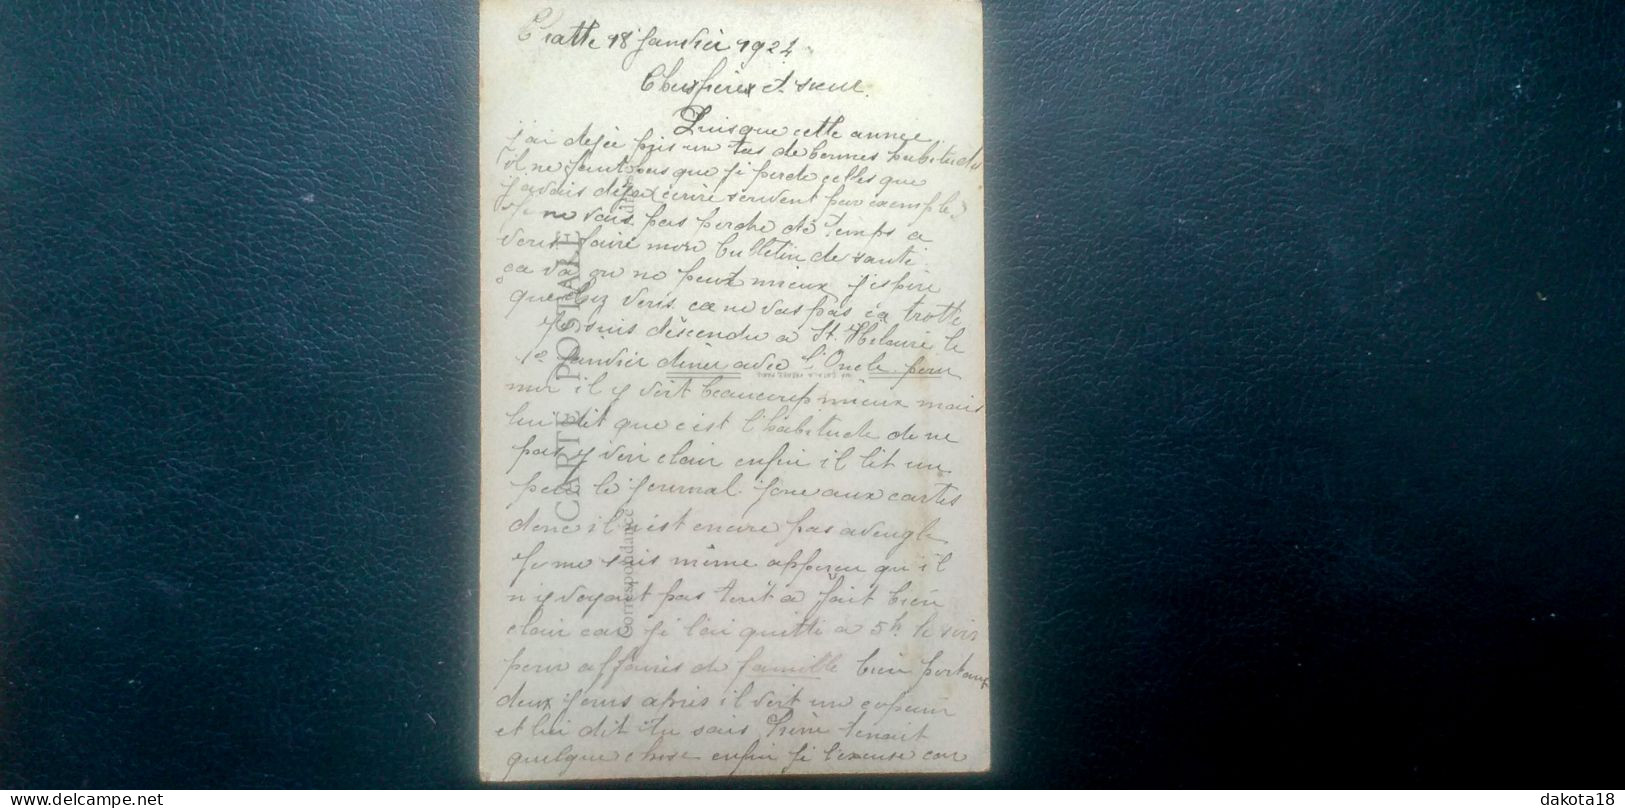 Chatte 18 Janvier 1924
Chers frère et soeur.
Puisque cette année
j'ai dejà pris un tas de bonnes habitudes
il ne faut pas que je perde celles que
j'avais déjà écrire souvent par exemple.
Je ne vais pas perdre de temps a
vous faire mon bulletin de santé
ça va on ne peut mieux j'espère
que chez vous ça ne vas pas ça trotte
Je suis descendu a St. Hilaire le
1e janvier diner avec l'Oncle pour
moi il y voit beaucoup mieux mais
lui dit que c'est l'habitude de ne
pas y voir clair enfin il lit un
peu le journal joue aux cartes
donc il n'est encore pas aveugle
Je me suis même apperçu qu'il
n'y voyait pas tout a fait bien
clair car je l'ai quitté a 5h le soir
pour affaires de famille bien portant
deux jours après il voit un copain
et lui dit tu sais tenait
quelque chose enfin je l'excuse car
CARTE POSTALE
Correspondance
dakota18